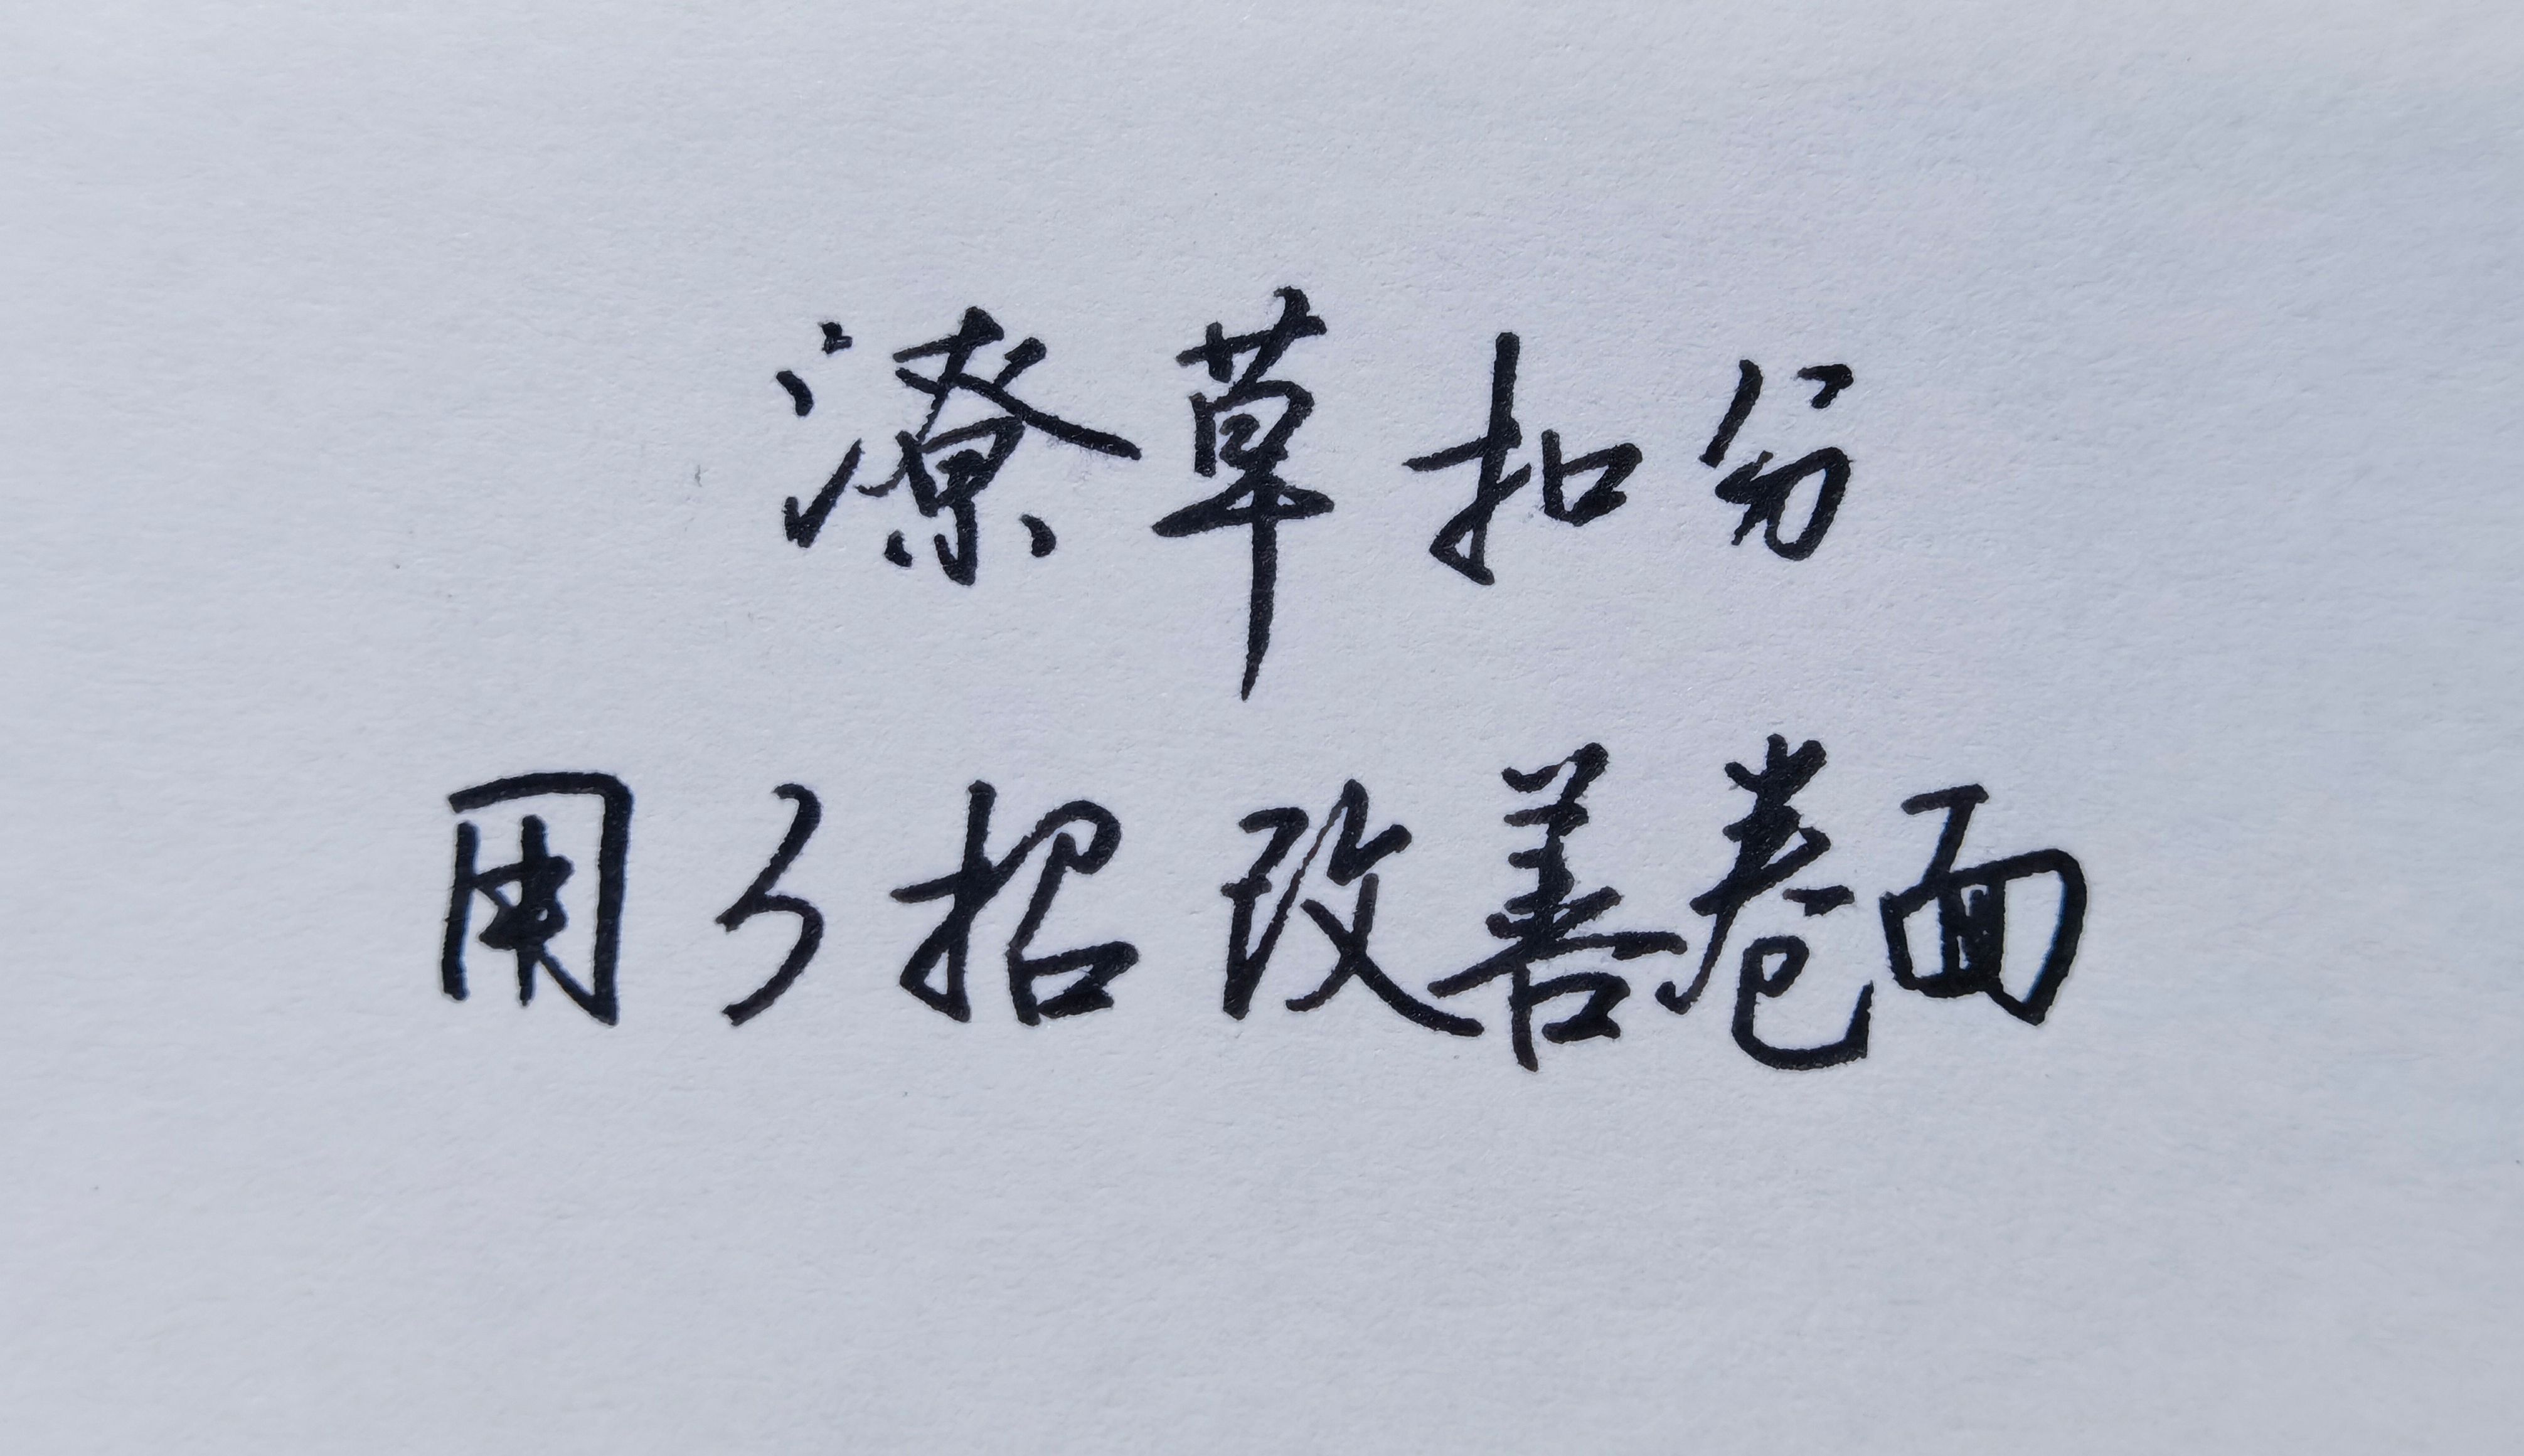 潦草扣分
用3招改善卷面